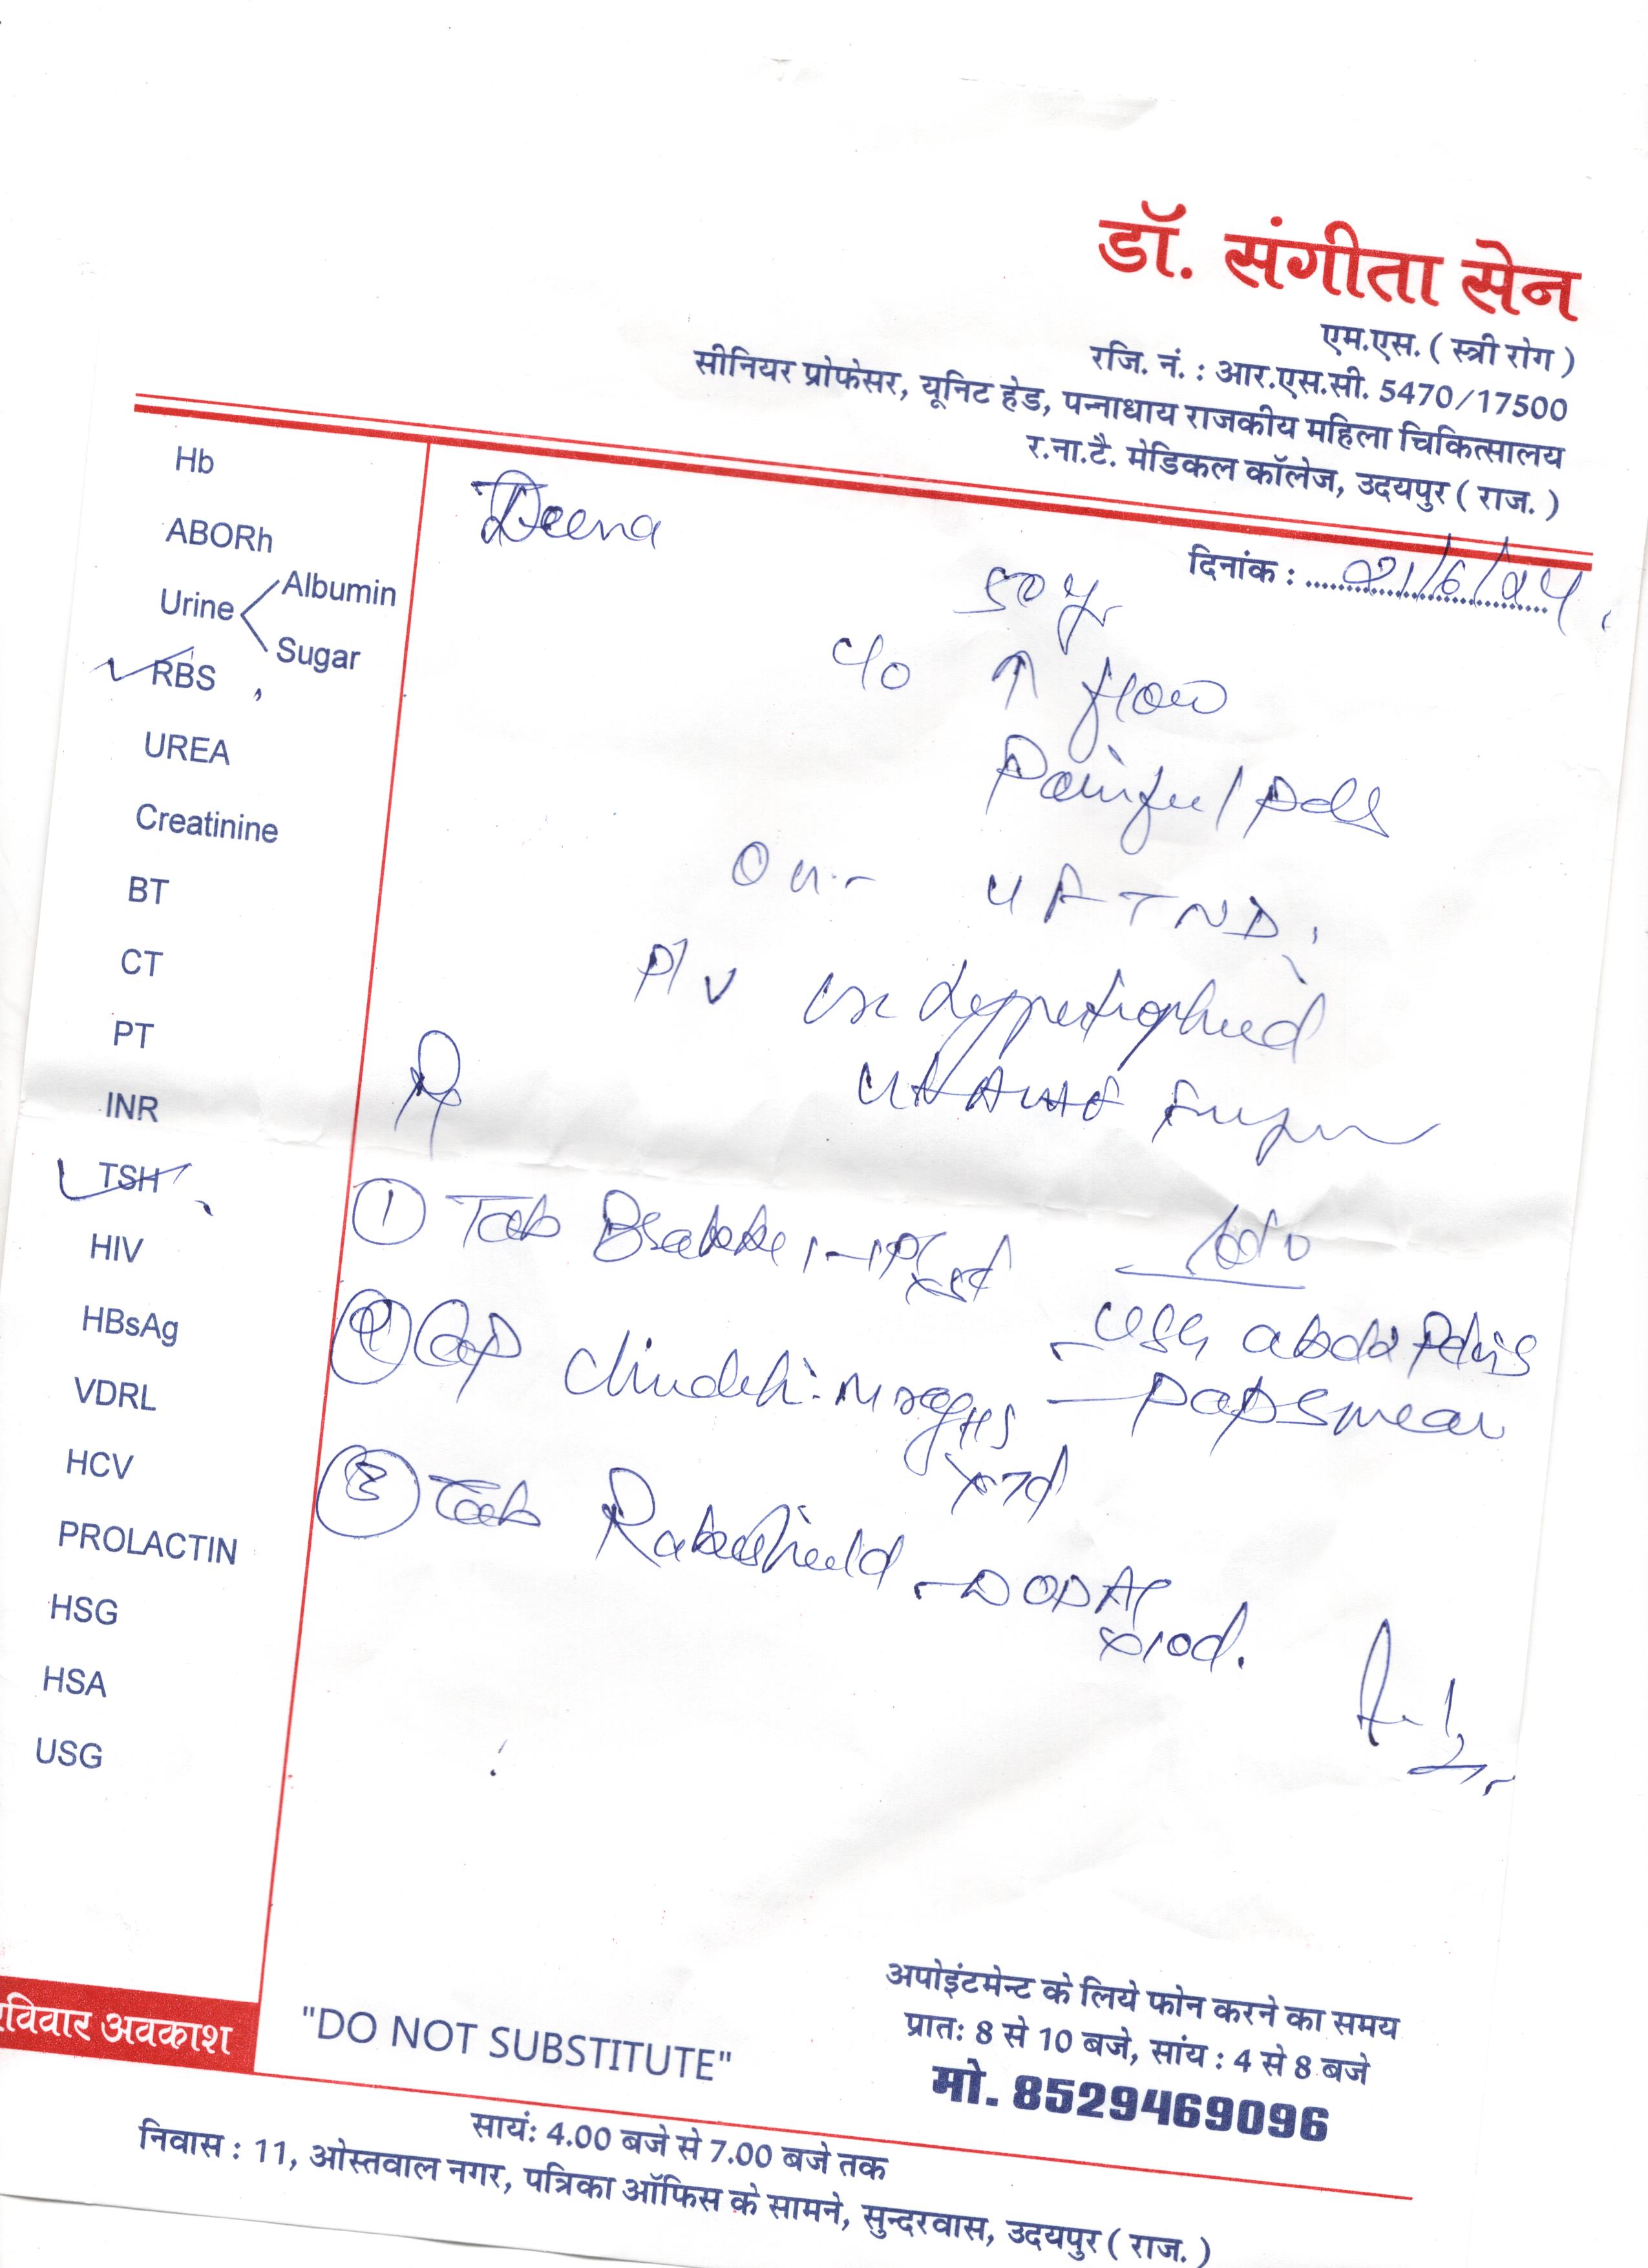 डॉ. संगीता सेन
एम.एस. ( स्त्री रोग )
रजि. नं. : आर.एस.सी. 5470/17500
सीनियर प्रोफेसर, यूनिट हेड, पन्नाधाय राजकीय महिला चिकित्सालय
र.ना.टै. मेडिकल कॉलेज, उदयपुर ( राज. )
दिनांक : 21/6/24
Hb
ABORh
Urine Albumin
Sugar
RBS
UREA
Creatinine
BT
CT
PT
INR
TSH
HIV
HBsAg
VDRL
HCV
PROLACTIN
HSG
HSA
USG
50 y
c/o ↑ flow
Painful
P/V Cx hypertrophied
Rx
① Tab
Adv
- USG abdo Pelvis
② - Pap smear
x 7d
③ Tab Rabeshield -
x 10d.
रविवार अवकाश
"DO NOT SUBSTITUTE"
अपोइंटमेन्ट के लिये फोन करने का समय
प्रातः 8 से 10 बजे, सांय : 4 से 8 बजे
मो. 8529469096
सायं: 4.00 बजे से 7.00 बजे तक
निवास : 11, ओस्तवाल नगर, पत्रिका ऑफिस के सामने, सुन्दरवास, उदयपुर ( राज. )